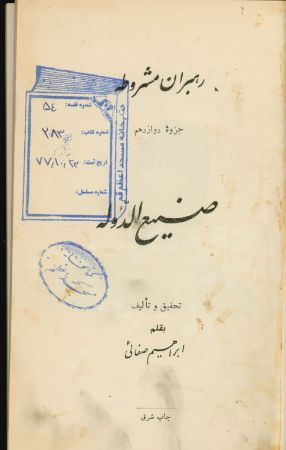 رهبران مشروطه
جزوهٔ دوازدهم
صنیع الدوله
تحقیق و تألیف
بقلم
ابراهیم صفائی
چاپ شرق
کتابخانه مسجد اعظم قم
شماره قفسه: ۵۴
شماره کتاب: ۲۸۳
تاریخ ثبت: ۷۷/۱۰/۲۳
شماره مسلسل: